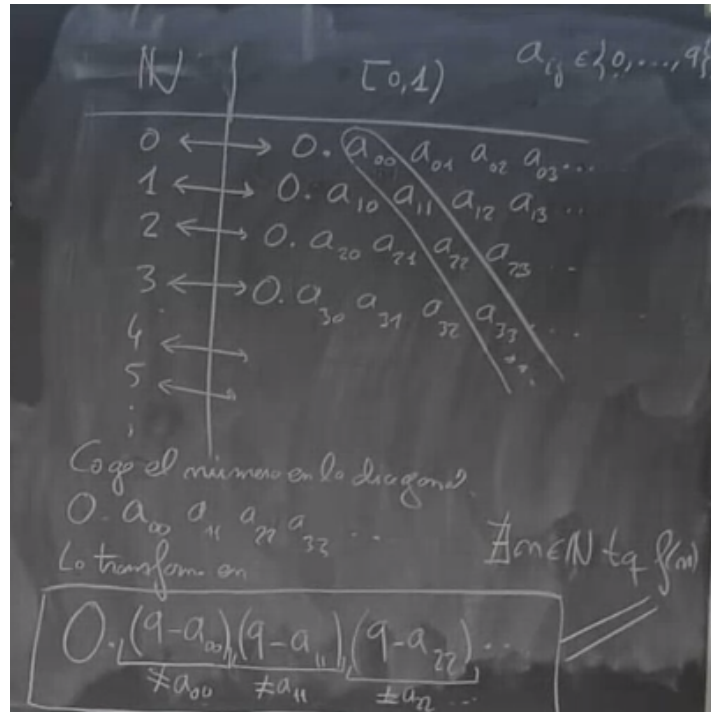 ℕ [0,1) a_{ij} ∈ {0,...,9}
0 ↔ 0. a_{00} a_{01} a_{02} a_{03}...
1 ↔ 0. a_{10} a_{11} a_{12} a_{13}...
2 ↔ 0. a_{20} a_{21} a_{22} a_{23}...
3 ↔ 0. a_{30} a_{31} a_{32} a_{33}...
4 ↔
5 ↔
⋮
Cojo el número en la diagonal.
0. a_{00} a_{11} a_{22} a_{33} ...
Lo transformo en
∄ n ∈ ℕ tq f(n)
0. (9-a_{00}) (9-a_{11}) (9-a_{22}) ...
≠a_{00} ≠a_{11} ≠a_{22} ...